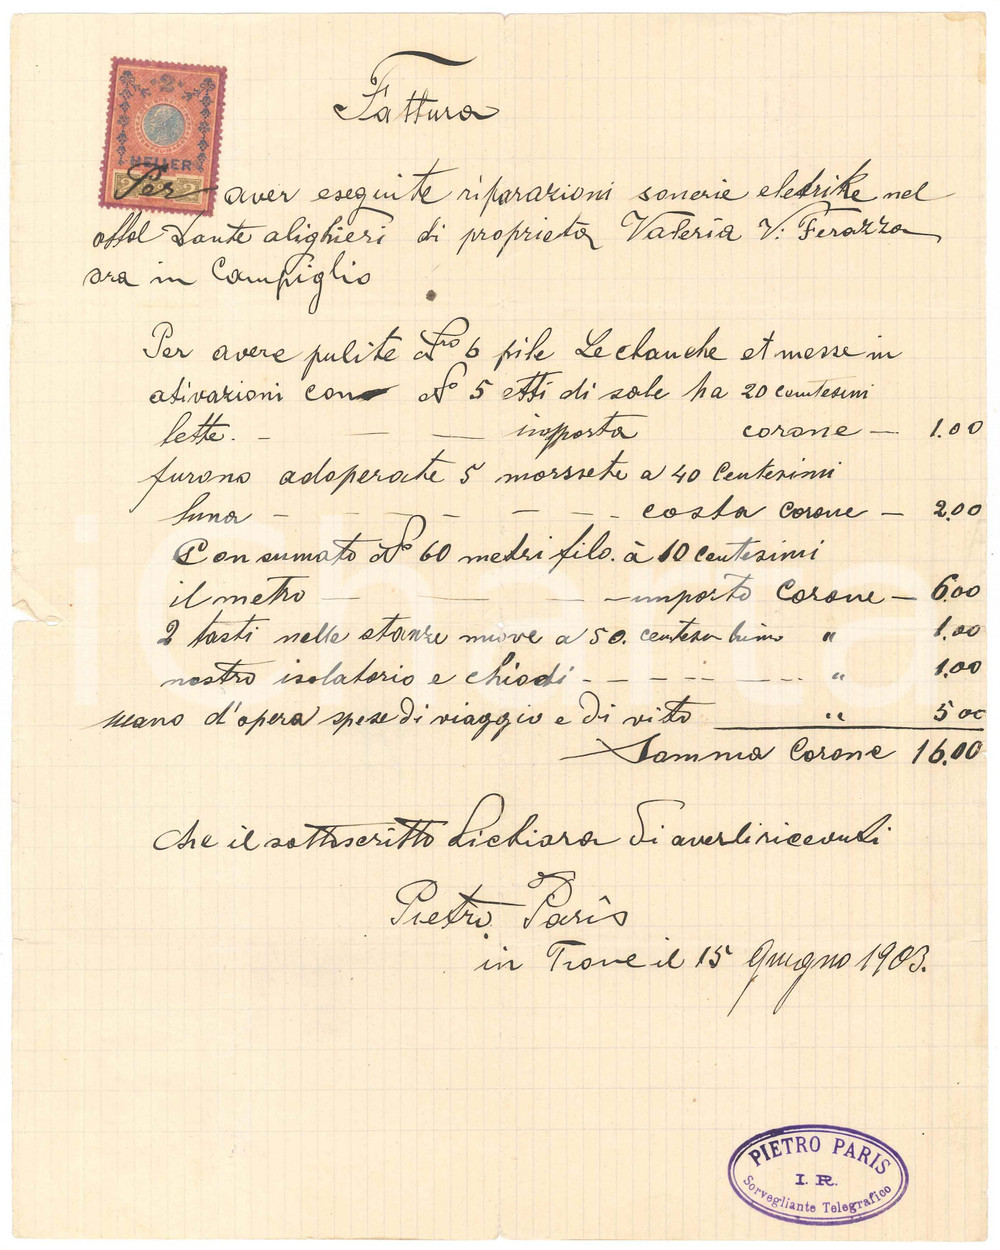 Fattura
2
HELLER
2 2
Per aver eseguite riparazioni sonerie eletrike nel
ottel Dante alighieri di proprieta Valeria V. Ferazza
ora in Campiglio
Per avere pulite Nro 6 pile Leclanche et messe in
ativazioni con No 5 etti di sale ha 20 centesimi
lette. - — — importa corone — 1.00
furono adoperate 5 morssete a 40 Centesimi
luna - - - - - - costa corone — 2.00
Consumato No 60 metri filo. à 10 centesimi
il metro — - - - importo Corone — 6.00
2 tasti nelle stanze nuove a 50. centesi luno " 1.00
nastro isolatorio e chiodi - - - - - - " 1.00
mano d'opera spese di viaggio e di vito " 5 00
Somma Corone 16.00
che il sottoscritto Dichiara di averli ricevuti
Pietro Paris
in Trone il 15 Giugno 1903.
PIETRO PARIS
I. R.
Sorvegliante Telegrafico